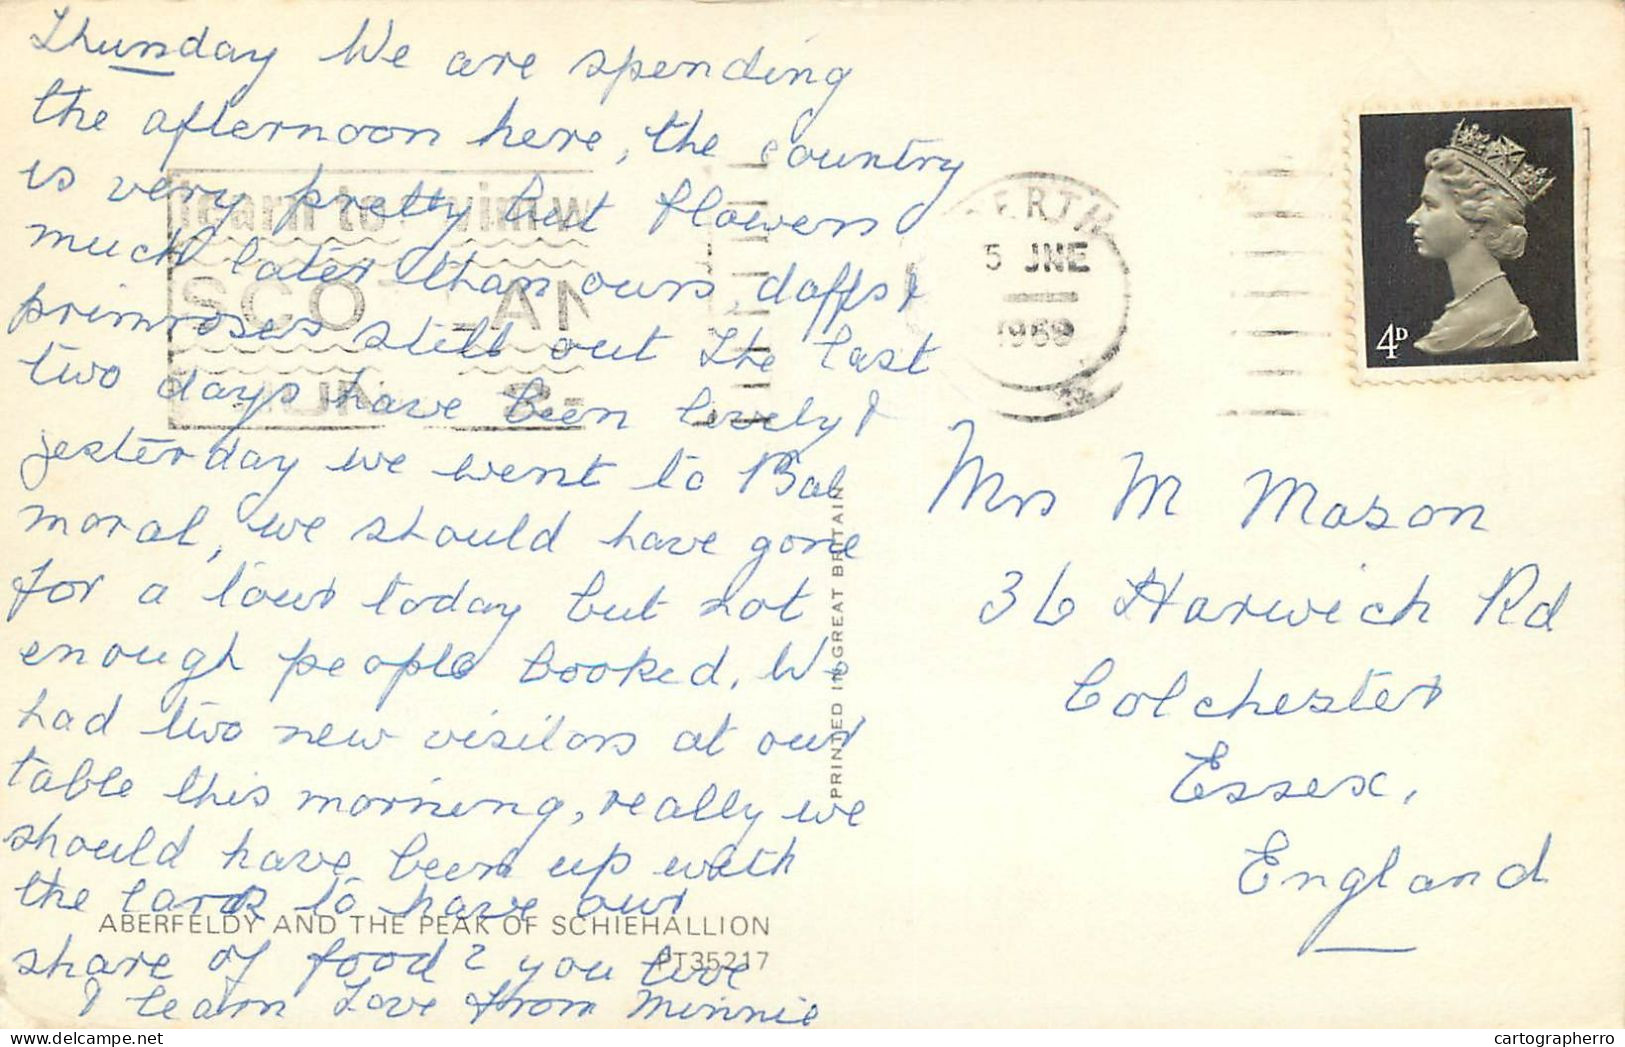 Thursday We are spending
the afternoon here, the country
is very pretty but flowers
much later than ours, daffs &
primroses still out The last
two days have been lovely &
yesterday we went to Bal
moral, we should have gone
for a tour today but not
enough people booked. We
had two new visitors at our
table this morning, really we
should have been up with
the larks to have our
share of food? you live
& learn Love from Minnie
ABERFELDY AND THE PEAK OF SCHIEHALLION
PT35217
PRINTED IN GREAT BRITAIN
learn to swim
SCOTLAND
PERTH
5 JNE
1969
4D
Mrs M Mason
36 Harwich Rd
Colchester
Essex,
England
delcampe.net
cartographerro